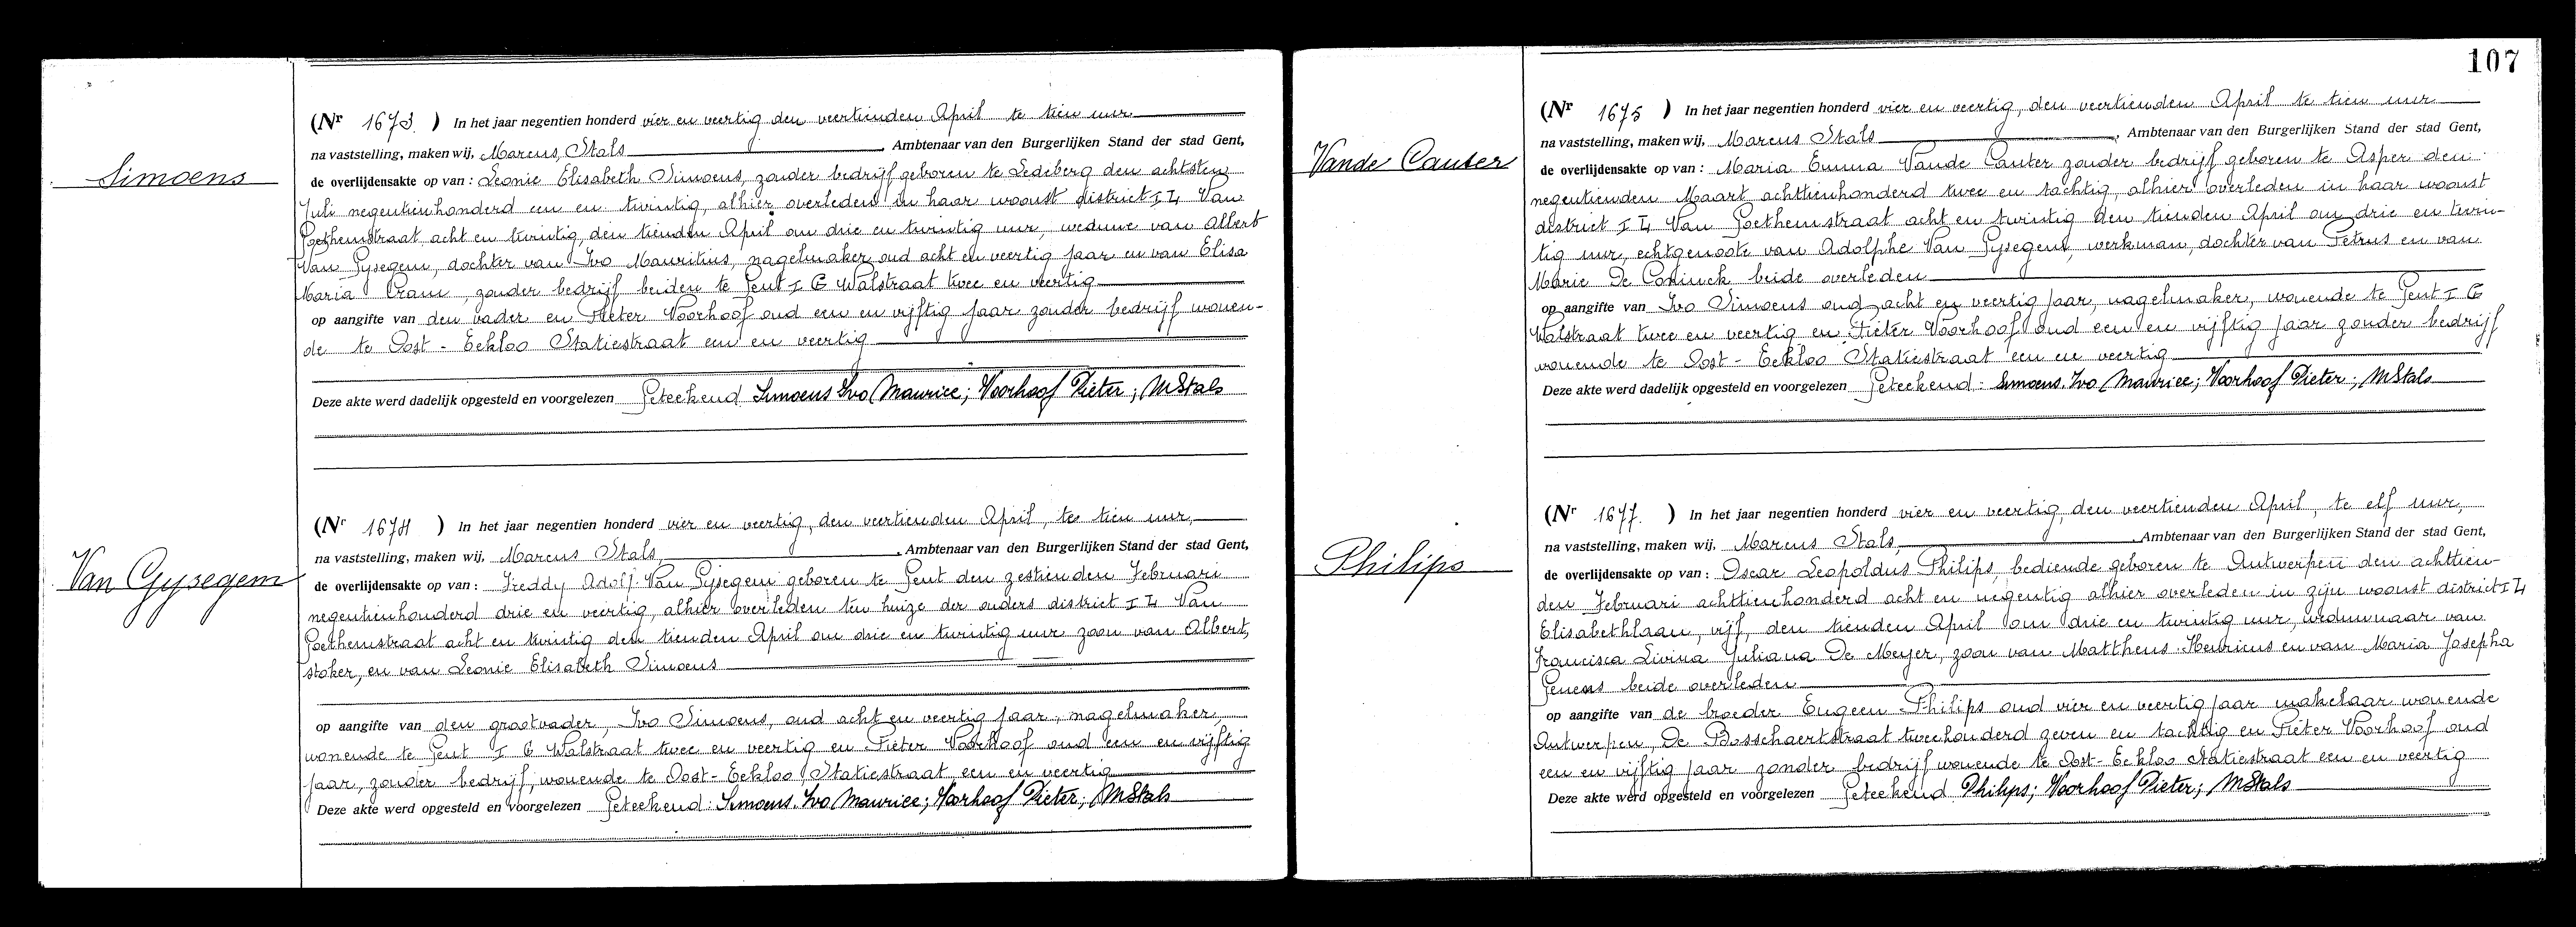 Simoens
(Nr 1673 ) In het jaar negentien honderd vier en veertig den veertienden April te tien uur
na vaststelling, maken wij, Marcus Stals, Ambtenaar van den Burgerlijken Stand der stad Gent,
de overlijdensakte op van : Leonie Elisabeth Simoens, zonder bedrijf geboren te Ledeberg den achtsten
Juli negentienhonderd een en twintig, alhier overleden in haar woonst district I 4 Van
Goethemstraat acht en twintig, den tienden April om drie en twintig uur, weduwe van Albert
Van Gysegem, dochter van Ivo Mauritius, nagelmaker oud acht en veertig jaar en van Elisa
Maria Cram, zonder bedrijf beiden te Gent I G Walstraat twee en veertig
op aangifte van den vader en Pieter Voorhoof oud een en vijftig jaar zonder bedrijf wonen-
de te Oost - Eekloo Statiestraat een en veertig
Deze akte werd dadelijk opgesteld en voorgelezen Geteekend Simoens Ivo Maurice; Voorhoof Pieter; MStals
Van Gysegem
(Nr 1674 ) In het jaar negentien honderd vier en veertig, den veertienden April, te tien uur,
na vaststelling, maken wij, Marcus Stals, Ambtenaar van den Burgerlijken Stand der stad Gent,
de overlijdensakte op van : Freddy Adolf Van Gysegem geboren te Gent den zestienden Februari
negentienhonderd drie en veertig, alhier overleden ten huize der ouders district I 4 Van
Goethemstraat acht en twintig den tienden April om drie en twintig uur zoon van Albert,
stoker, en van Leonie Elisabeth Simoens
op aangifte van den grootvader, Ivo Simoens, oud acht en veertig jaar, nagelmaker,
wonende te Gent I G Walstraat twee en veertig en Pieter Voorhoof oud een en vijftig
jaar, zonder bedrijf, wonende te Oost-Eekloo Statiestraat een en veertig
Deze akte werd opgesteld en voorgelezen Geteekend: Simoens Ivo Maurice; Voorhoof Pieter; MStals
107
Vande Cauter
(Nr 1675 ) In het jaar negentien honderd vier en veertig, den veertienden April te tien uur
na vaststelling, maken wij, Marcus Stals, Ambtenaar van den Burgerlijken Stand der stad Gent,
de overlijdensakte op van : Maria Emma Vande Cauter zonder bedrijf geboren te Asper den
negentienden Maart achttienhonderd twee en tachtig, alhier overleden in haar woonst
district I 4 Van Goethemstraat acht en twintig den tienden April om drie en twin-
tig uur, echtgenoote van Adolphe Van Gysegem, werkman, dochter van Petrus en van
Marie De Coninck beide overleden
op aangifte van Ivo Simoens oud acht en veertig jaar, nagelmaker, wonende te Gent I G
Walstraat twee en veertig en Pieter Voorhoof oud een en vijftig jaar zonder bedrijf
wonende te Oost - Eekloo Statiestraat een en veertig
Deze akte werd dadelijk opgesteld en voorgelezen Geteekend: Simoens Ivo Maurice; Voorhoof Pieter; MStals
Philips
(Nr 1677. ) In het jaar negentien honderd vier en veertig, den veertienden April, te elf uur,
na vaststelling, maken wij, Marcus Stals, Ambtenaar van den Burgerlijken Stand der stad Gent,
de overlijdensakte op van : Oscar Leopoldus Philips, bediende geboren te Antwerpen den achttien-
den Februari achttienhonderd acht en negentig alhier overleden in zijn woonst district I 4
Elisabethlaan, vijf, den tienden April om drie en twintig uur, weduwnaar van
Francisca Livina Juliana De Meyer, zoon van Mattheus Henricus en van Maria Josepha
Genens beide overleden
op aangifte van de broeder Eugeen Philips oud vier en veertig jaar makelaar wonende
Antwerpen, De Bosschaertstraat tweehonderd zeven en tachtig en Pieter Voorhoof oud
een en vijftig jaar zonder bedrijf wonende te Oost-Eekloo Statiestraat een en veertig
Deze akte werd opgesteld en voorgelezen Geteekend Philips; Voorhoof Pieter; MStals